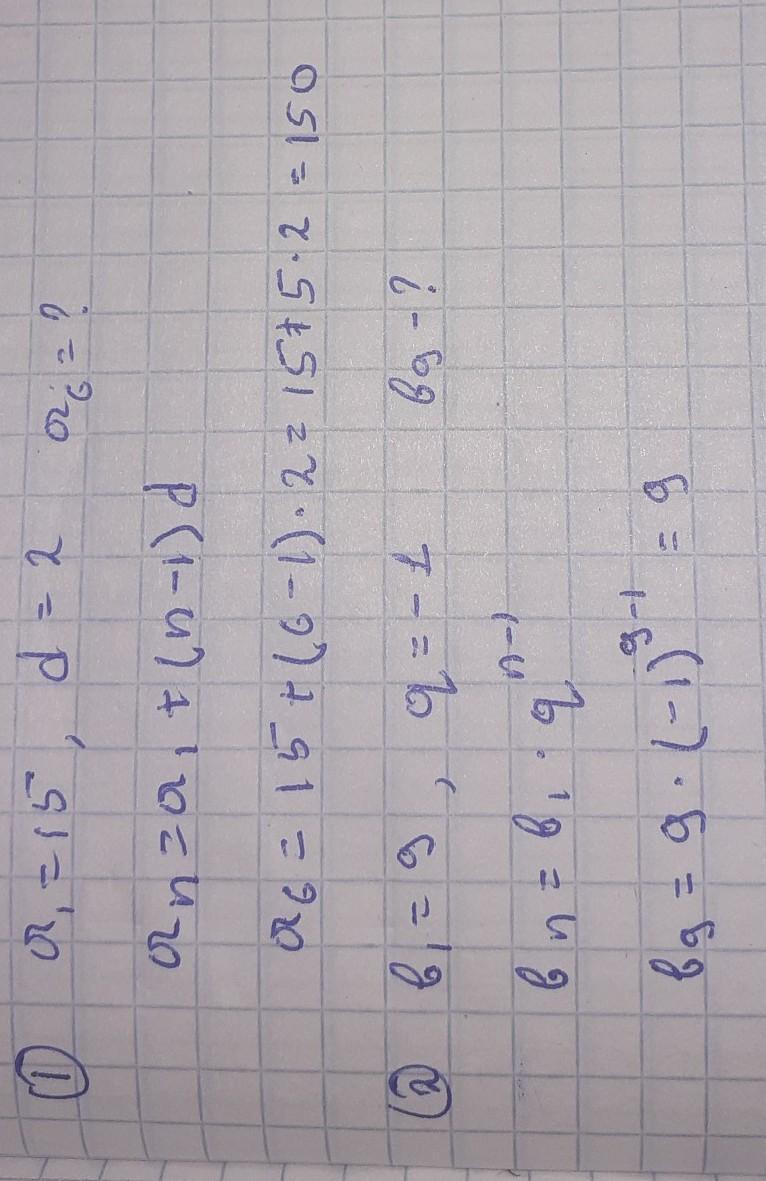 ① a₁ = 15, d = 2 a₆ = ?
aₙ = a₁ + (n-1)d
a₆ = 15 + (6-1)·2 = 15+5·2 = 150
② b₁ = 9, q = -1 b₉ - ?
bₙ = b₁ · qⁿ⁻¹
b₉ = 9 · (-1)⁹⁻¹ = 9